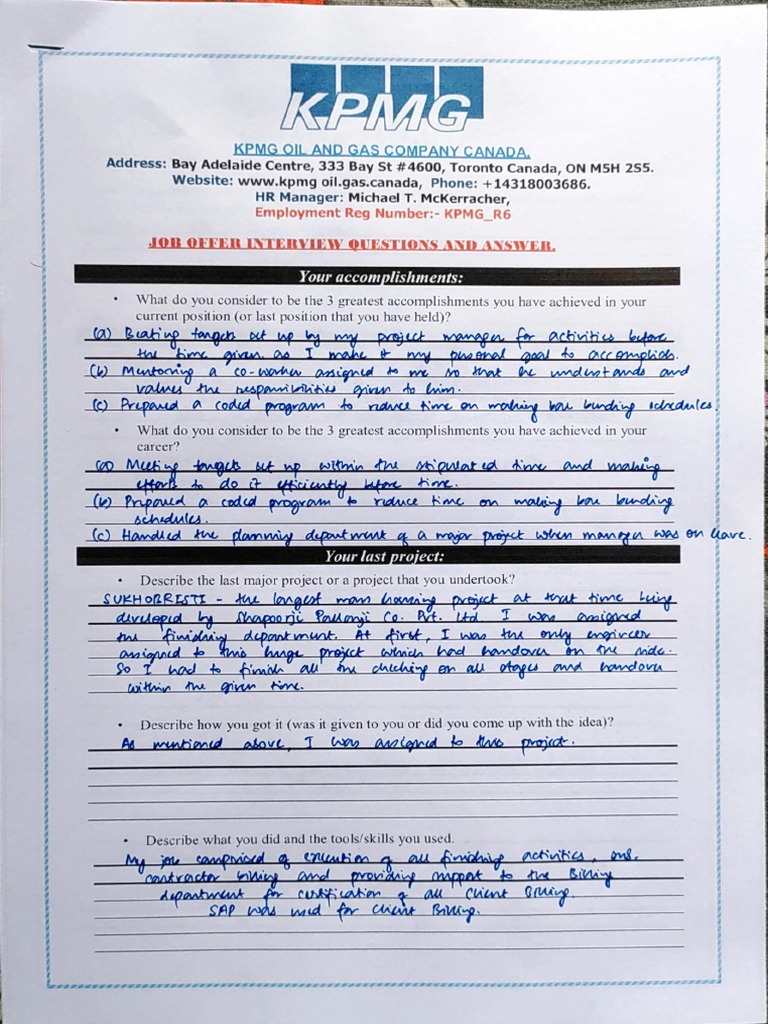 KPMG
KPMG OIL AND GAS COMPANY CANADA.
Address: Bay Adelaide Centre, 333 Bay St #4600, Toronto Canada, ON M5H 2S5.
Website: www.kpmg oil.gas.canada, Phone: +14318003686.
HR Manager: Michael T. McKerracher,
Employment Reg Number:- KPMG_R6
JOB OFFER INTERVIEW QUESTIONS AND ANSWER.
Your accomplishments:
• What do you consider to be the 3 greatest accomplishments you have achieved in your
current position (or last position that you have held)?
(a) Beating targets set up by my project manager for activities before
the time given as I make it my personal goal to accomplish.
(b) Mentoring a co-worker assigned to me so that he understands and
values the responsibilities given to him.
(c) Prepared a coded program to reduce time on making bar bending schedules.
• What do you consider to be the 3 greatest accomplishments you have achieved in your
career?
(a) Meeting targets set up within the stipulated time and making
efforts to do it efficiently before time.
(b) Prepared a coded program to reduce time on making bar bending
schedules.
(c) Handled the planning department of a major project when manager was on leave.
Your last project:
• Describe the last major project or a project that you undertook?
SUKHOBRISTI - the largest mass housing project at that time being
developed by Shapoorji Pallonji Co. Pvt. Ltd I was assigned
the finishing department. At first, I was the only engineer
assigned to this huge project which had handover on the side.
So I had to finish all the checking on all stages and handover
within the given time.
• Describe how you got it (was it given to you or did you come up with the idea)?
As mentioned above, I was assigned to this project.
• Describe what you did and the tools/skills you used.
My job comprised of execution of all finishing activities,
contractor billing and providing support to the Billing
department for certification of all Client Billing.
SAP was used for Client Billing.